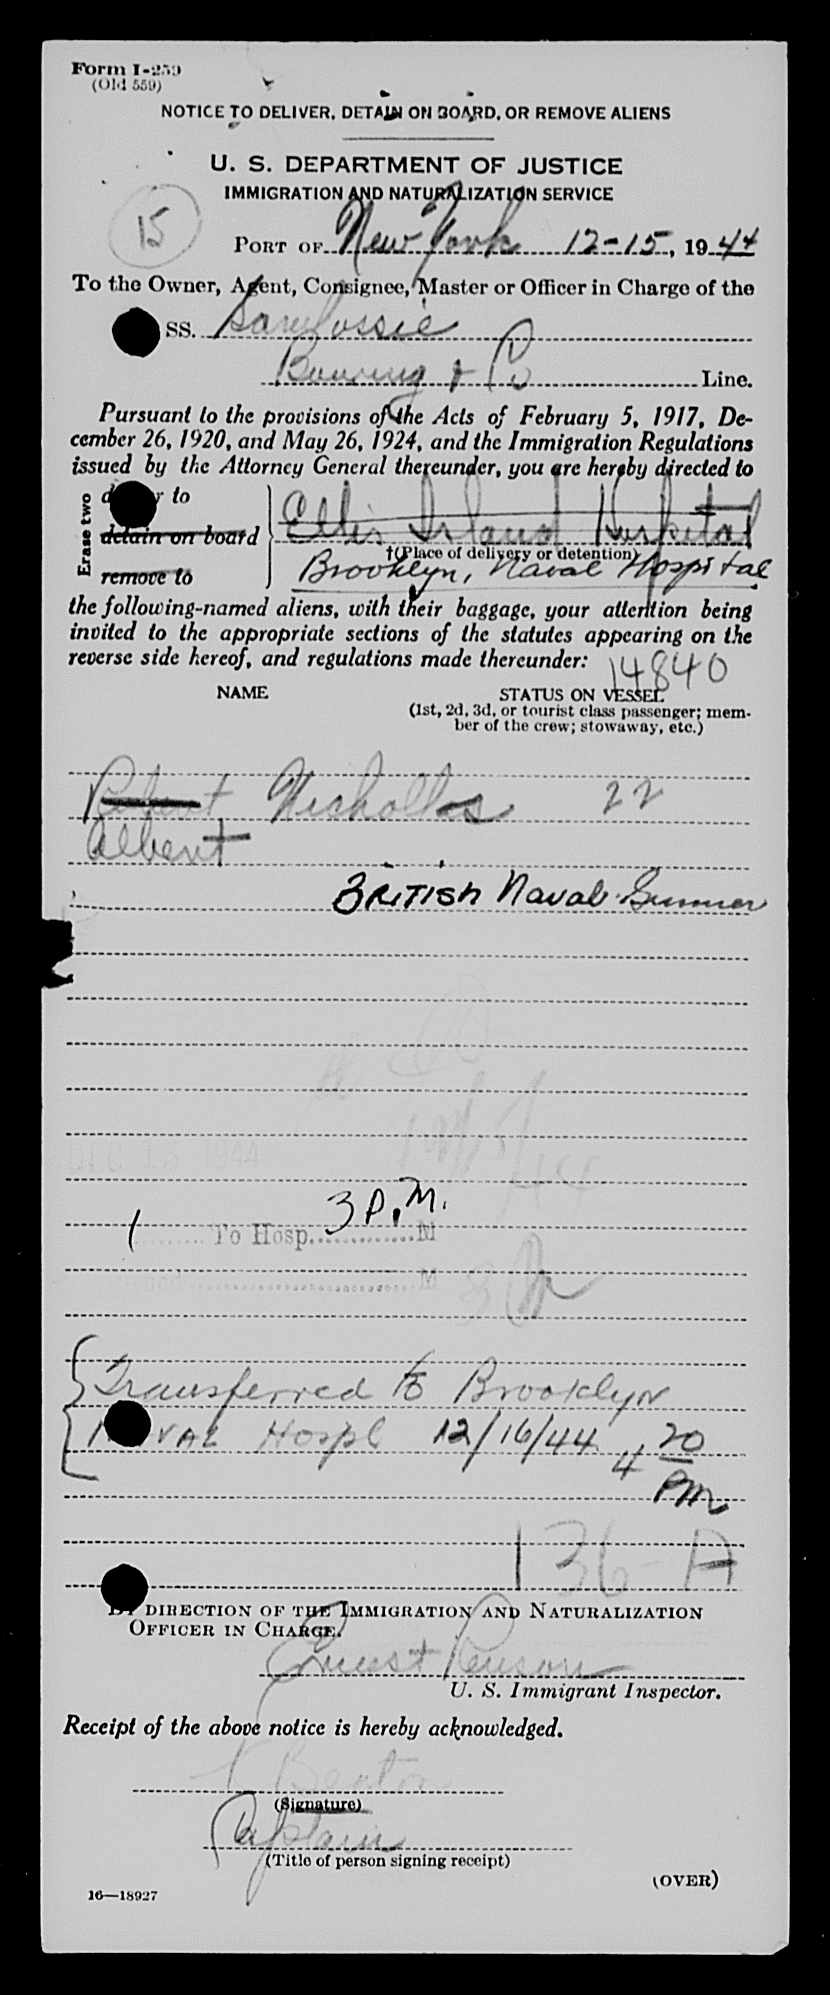 Form I-259
(Old 559)
NOTICE TO DELIVER, DETAIN ON BOARD, OR REMOVE ALIENS
U. S. DEPARTMENT OF JUSTICE
IMMIGRATION AND NATURALIZATION SERVICE
15
PORT OF New York 12-15, 1944
To the Owner, Agent, Consignee, Master or Officer in Charge of the
SS. Samfossie
Bowring & Co Line.
Pursuant to the provisions of the Acts of February 5, 1917, De-
cember 26, 1920, and May 26, 1924, and the Immigration Regulations
issued by the Attorney General thereunder, you are hereby directed to
Erase two
to
detain on board
remove to
Ellis Island Hospital
†(Place of delivery or detention)
Brooklyn, Naval Hospital
the following-named aliens, with their baggage, your attention being
invited to the appropriate sections of the statutes appearing on the
reverse side hereof, and regulations made thereunder:
14840
NAME STATUS ON VESSEL
(1st, 2d, 3d, or tourist class passenger; mem-
ber of the crew; stowaway, etc.)
Robert Nicholls 22
Albert
BRITISH Naval Gunner
DEC 15 1944
12/15/44
1 To Hosp. 3 P.M. M
M
Transferred to Brooklyn
NAVAL Hospl 12/16/44 4 20 PM
136-A
BY DIRECTION OF THE IMMIGRATION AND NATURALIZATION
OFFICER IN CHARGE.
Ernest
U. S. Immigrant Inspector.
Receipt of the above notice is hereby acknowledged.
Beaton
(Signature)
Captain
(Title of person signing receipt)
(OVER)
16—18927